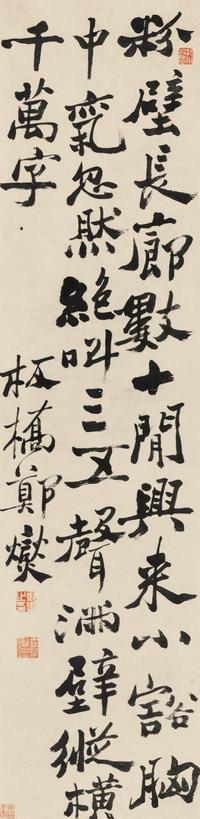 粉壁長廊數十閒興來小豁胸
中氣忽然絕叫三五聲滿壁縱橫
千萬字
板橋鄭燮